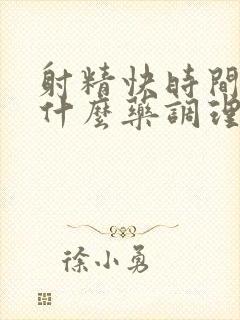 射精快時間
什麼藥調理
徐小勇